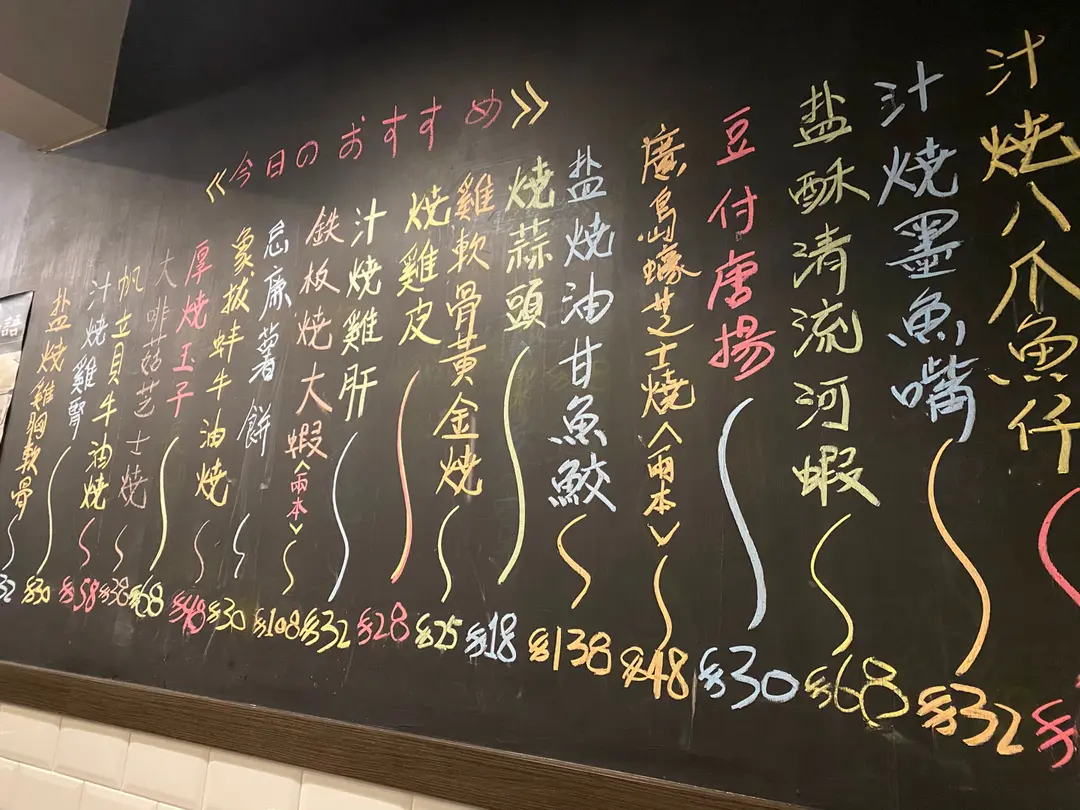 <<今日のおすすめ>>
汁燒八爪魚仔
汁燒墨魚嘴 $32
盐酥清流河蝦 $68
豆付唐揚 $30
廣島蠔芝士燒<兩本> $48
盐燒油甘魚鮫 $138
燒蒜頭 $18
雞軟骨黃金燒 $25
燒雞皮 $28
汁燒雞肝 $32
鉄板燒大蝦<兩本> $108
忌廉薯餅 $30
象拔蚌牛油燒 $48
厚燒玉子 $68
大啡菇芝士燒 $38
帆立貝牛油燒 $58
汁燒雞腎 $30
盐燒雞胸軟骨 32
語